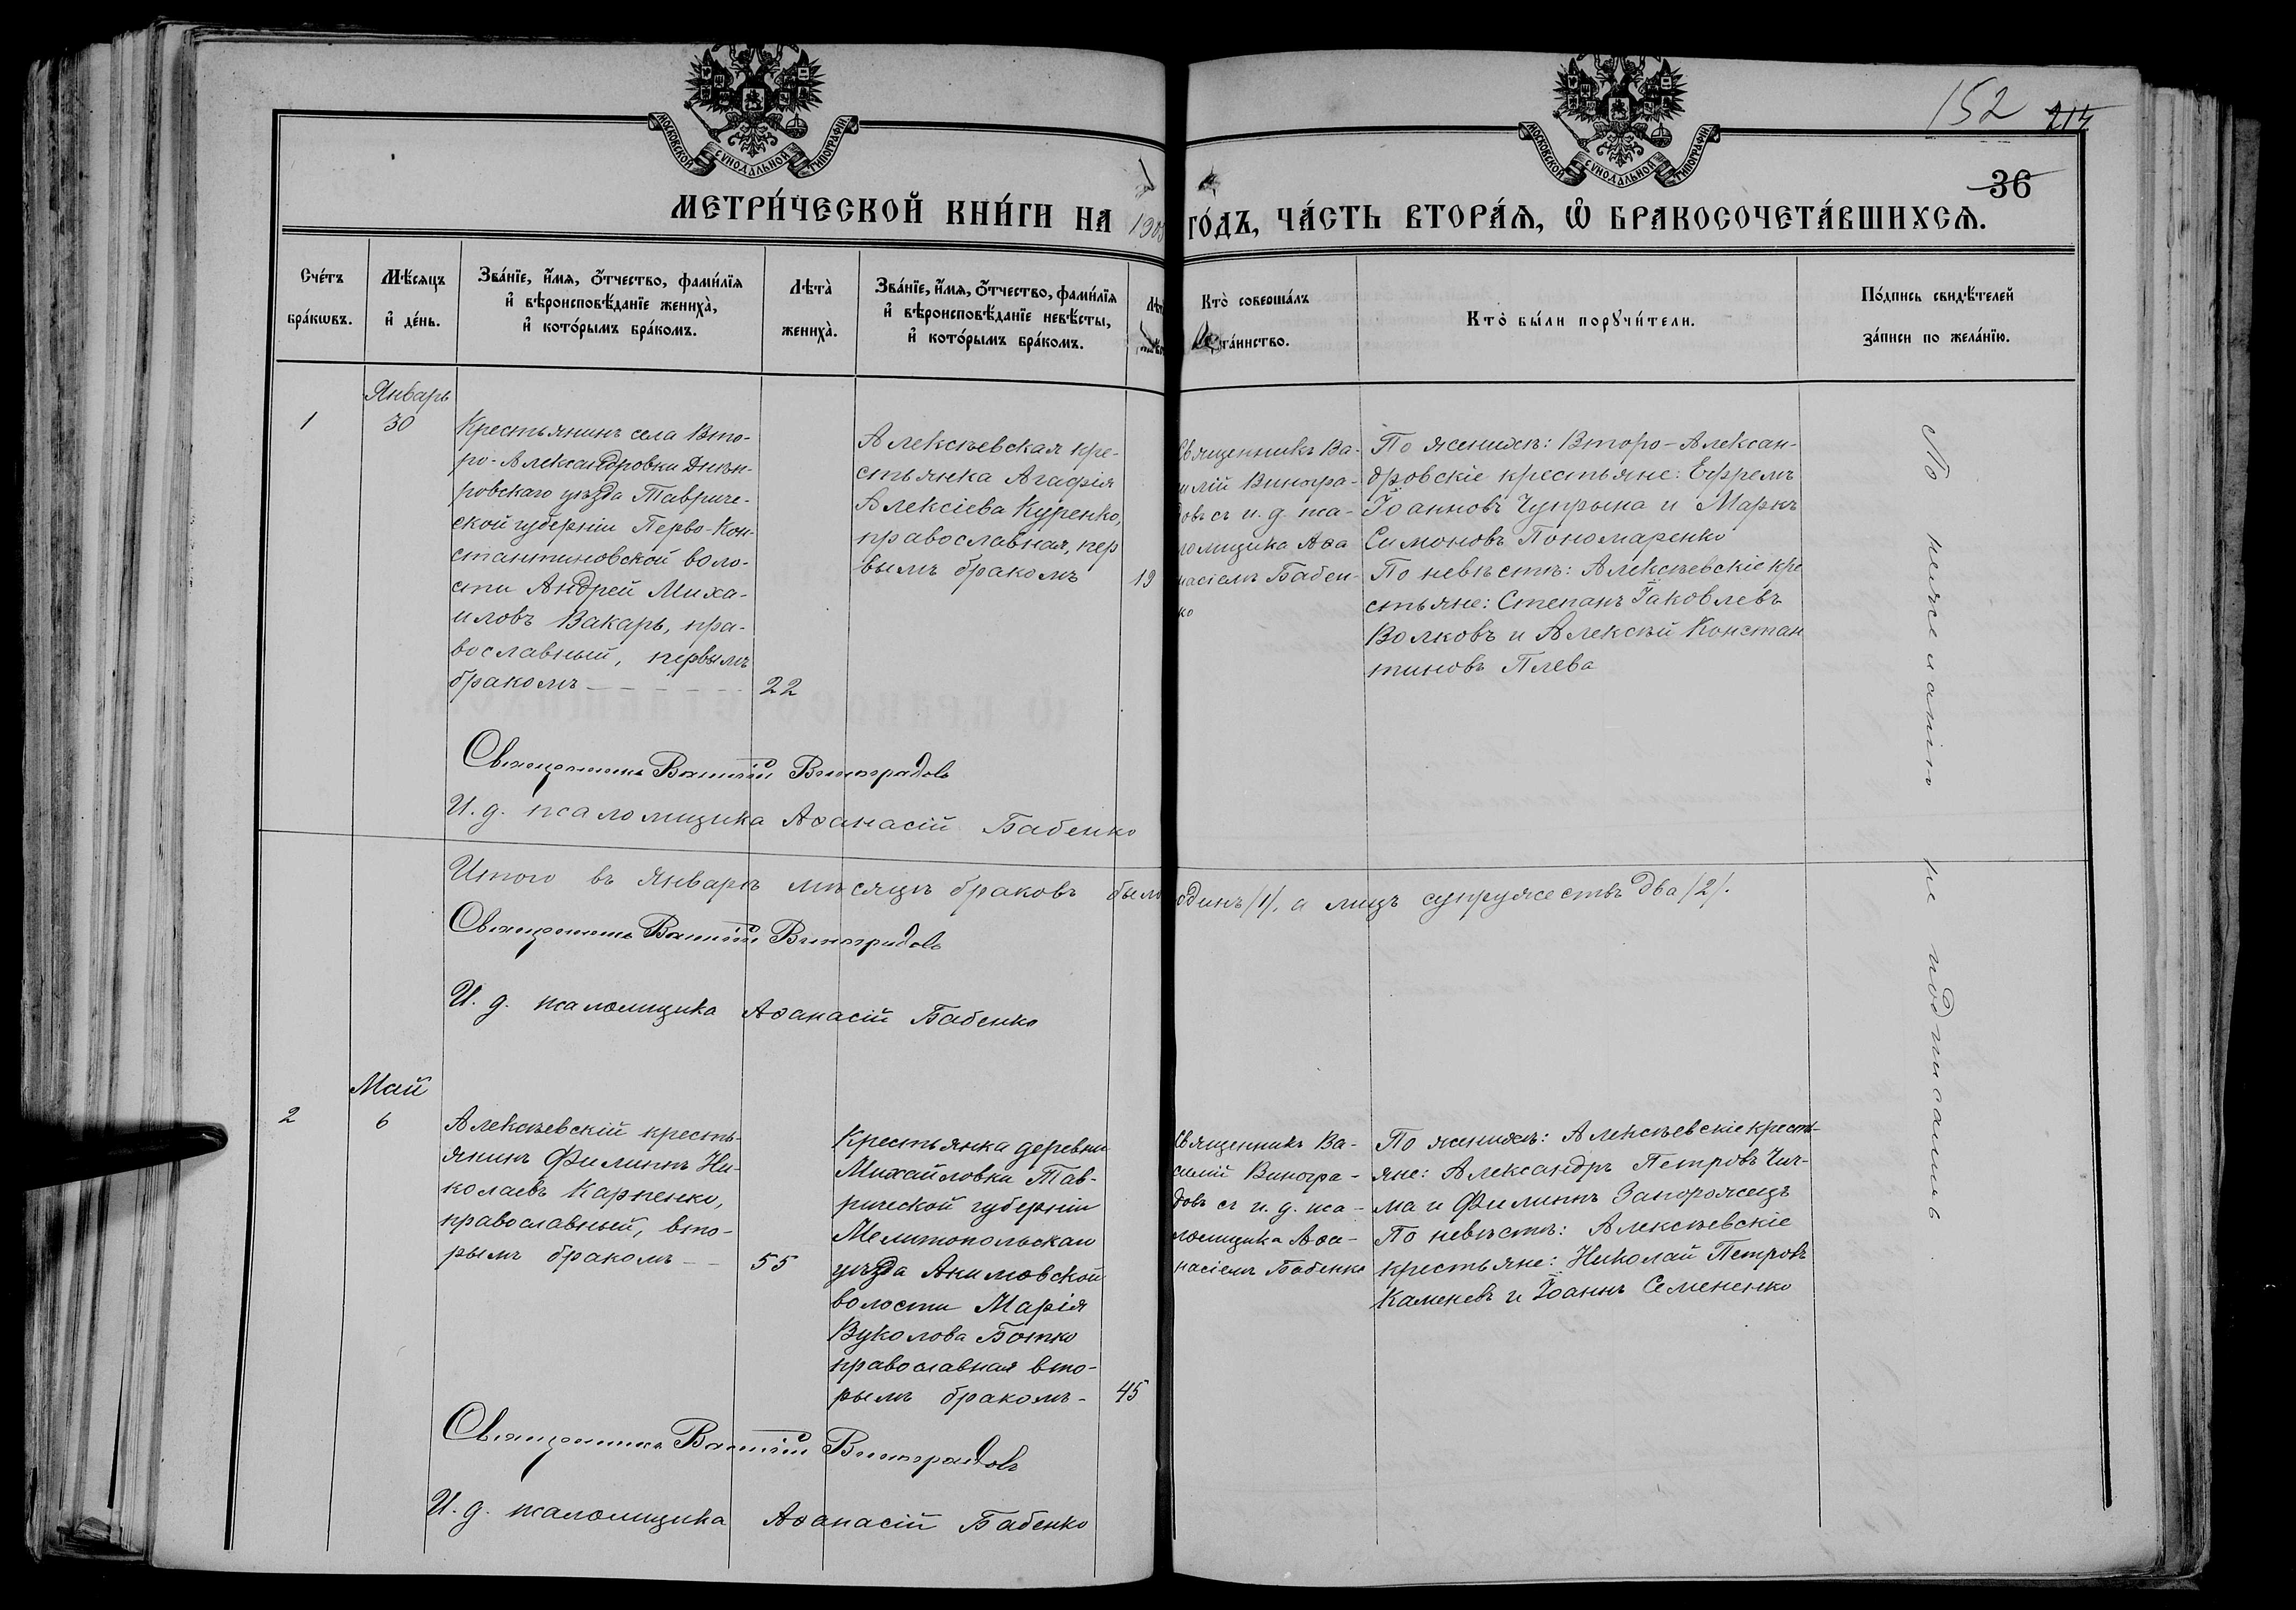 МОСКОВСКОЙ СѴНОДАЛЬНОЙ ТИПОГРАФІИ
МОСКОВСКОЙ СѴНОДАЛЬНОЙ ТИПОГРАФІИ
152 214
36
МЕТРИ́ЧЕСКОЙ КНИ́ГИ НА
ГО́ДЪ, ЧА́СТЬ ВТОРА́Ѧ, Ѡ҆ БРАКОСОЧЕТА́ВШИХСѦ.
Сче́тъ
бра́кѡвъ.
Мѣ́сяцъ
и҆ де́нь.
Зва́нїе, и҆́мя, ѻ҆́тчество, фами́лїя
и҆ вѣроисповѣ́данїе жениха̀,
и҆ кото́рымъ бра́комъ.
Лѣта̀
жениха̀.
Зва́нїе, и҆́мя, ѻ҆́тчество, фами́лїя
и҆ вѣроисповѣ́данїе невѣ́сты,
и҆ кото́рымъ бра́комъ.
Кто̀ соверша́лъ
та́инство.
Кто̀ бы́ли порꙋчи́тели.
По́дпись свидѣ́телей
за́писи по жела́нїю.
1
Январь
30
Крестьянинъ села Вто-
ро-Александровки Днѣп-
ровскаго уѣзда Тавриче-
ской губерніи Перво-Кон-
стантиновской воло-
сти Андрей Миха-
иловъ Вакарь, пра-
вославный, первымъ
бракомъ
22
Алексѣевская кре-
стьянка Агафія
Алексіева Куренко,
православная, пер
вымъ бракомъ
19
Священникъ Ва-
силій Виногра-
довъ съ и. д. пса-
ломщика Аѳа
насіемъ Бабен-
ко
По женихѣ: Второ-Алексан-
дровскіе крестьяне: Ефремъ
Іоанновъ Чупрына и Маркъ
Симоновъ Пономаренко
По невѣстѣ: Алексѣевскіе кре
стьяне: Степанъ Іаковлевъ
Волковъ и Алексѣй Констан
тиновъ Плева
По нежеланію не подписались.
Священникъ Василій Виноградовъ
И. д. псаломщика Аѳанасій Бабенко
Итого въ Январѣ мѣсяцѣ браковъ было одинъ /1/, а лицъ супружествъ два /2/.
Священникъ Василій Виноградовъ
И. д. псаломщика Аѳанасій Бабенко
2
Май
6
Алексѣевскій кресть-
янинъ Филиппъ Ни-
колаевъ Карпенко,
православный, вто-
рымъ бракомъ
55
Крестьянка деревни
Михайловки Тав-
рической губерніи
Мелитопольскаго
уѣзда Акимовской
волости Марія
Вуколова Ботко
православная вто-
рымъ бракомъ-
45
Священникъ Ва-
силій Виногра-
довъ съ и. д. пса-
ломщика Аѳа-
насіемъ Бабенко
По женихѣ: Алексѣевскіе кресть-
яне: Александръ Петровъ Чич-
ма и Филиппъ Запорожецъ
По невѣстѣ: Алексѣевскіе
крестьяне: Николай Петровъ
Каменевъ и Іоаннъ Семененко
Священникъ Василій Виноградовъ
И. д. псаломщика Аѳанасій Бабенко